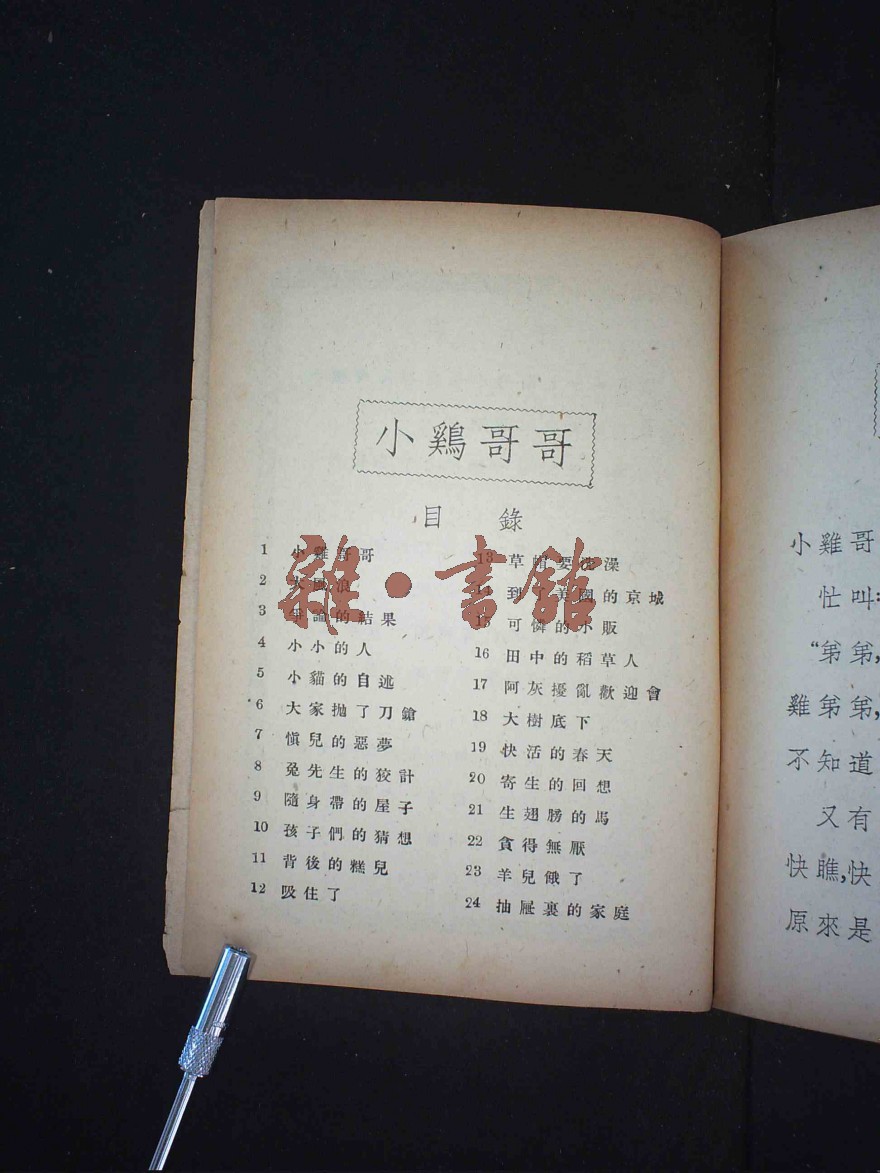 小鷄哥哥
目 錄
1 小雞哥哥
2 大風浪
3 爭論的結果
4 小小的人
5 小貓的自述
6 大家抛了刀鎗
7 愼兒的惡夢
8 兔先生的狡計
9 隨身帶的屋子
10 孩子們的猜想
11 背後的糕兒
12 吸住了
13 草帽要洗澡
14 到了美國的京城
15 可憐的小販
16 田中的稻草人
17 阿灰擾亂歡迎會
18 大樹底下
19 快活的春天
20 寄生的回想
21 生翅膀的馬
22 貪得無厭
23 羊兒餓了
24 抽屜裏的家庭
雜·書館
小雞哥
忙叫:
“弟弟,
雞弟弟,
不知道
又有
快瞧,快
原來是